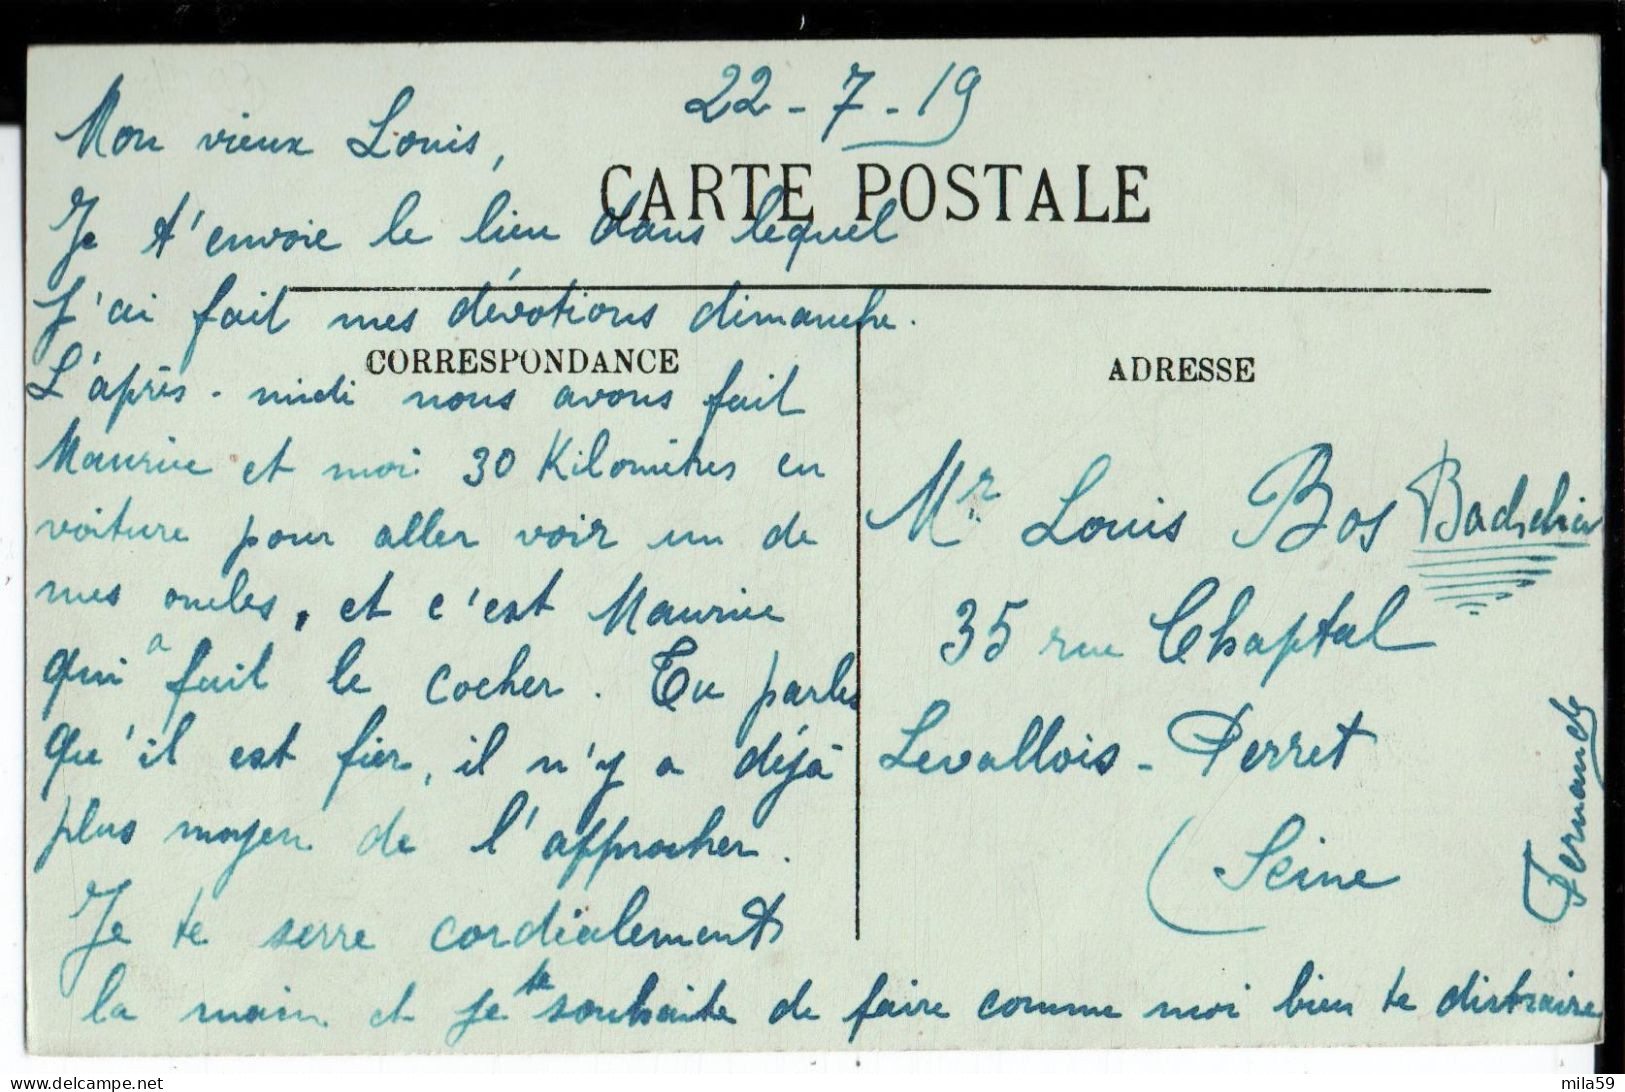 22-7-19
Mon vieux Louis,
CARTE POSTALE
Je t'envoie le lieu dans lequel
j'ai fait mes dévotions dimanche.
CORRESPONDANCE
L'après-midi nous avons fait
Maurice et moi 30 Kilomètres en
voiture pour aller voir un de
mes oncles, et c'est Maurice
qui a fait le cocher. Tu parles
qu'il est fier, il n'y a déjà
plus moyen de l'approcher.
Je te serre cordialement
la main et je te souhaite de faire comme moi bien te distraire
ADRESSE
Mr Louis Bos
35 rue Chaptal
Levallois-Perret
(Seine
Fernande
mila59